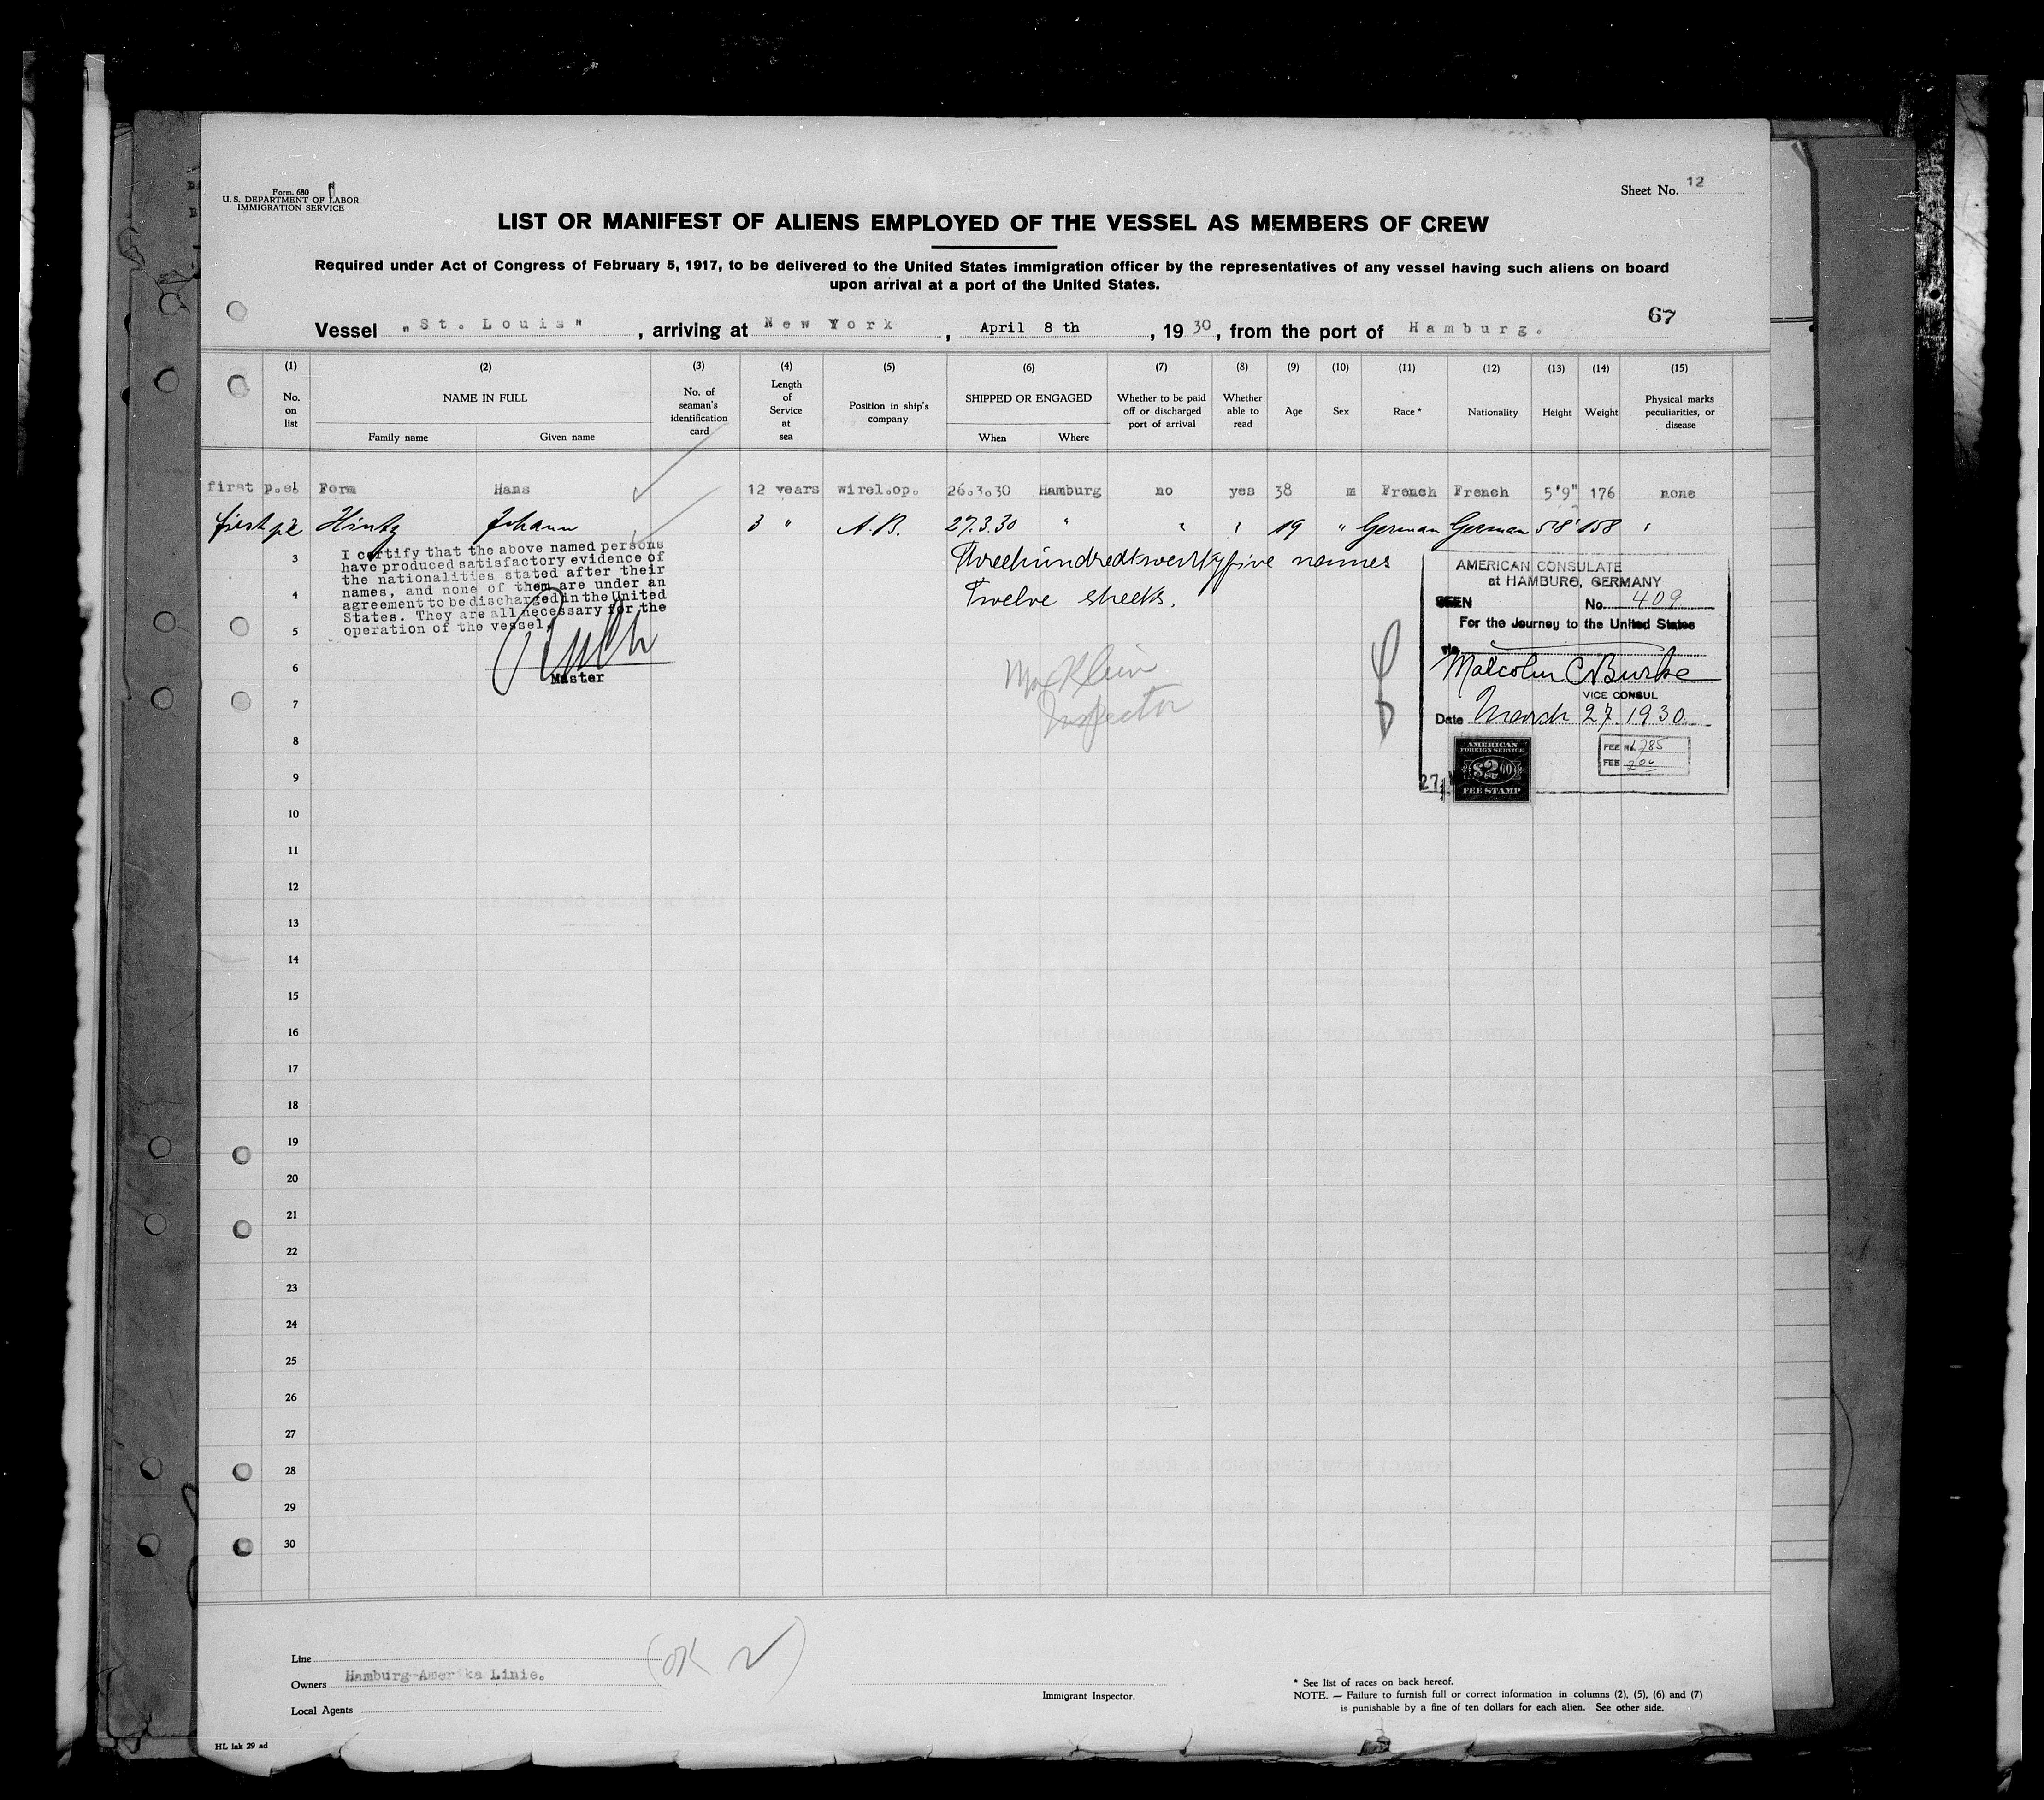 Form. 680
U.S. DEPARTMENT OF LABOR
IMMIGRATION SERVICE
Sheet No. 12
LIST OR MANIFEST OF ALIENS EMPLOYED OF THE VESSEL AS MEMBERS OF CREW
Required under Act of Congress of February 5, 1917, to be delivered to the United States immigration officer by the representatives of any vessel having such aliens on board
upon arrival at a port of the United States.
67
Vessel „St. Louis" , arriving at New York , April 8 th , 19 30, from the port of Hamburg.
(1) (2) (3) (4) (5) (6) (7) (8) (9) (10) (11) (12) (13) (14) (15)
No. on list
NAME IN FULL
Family name Given name
No. of seaman's identification card
Length of Service at sea
Position in ship's company
SHIPPED OR ENGAGED
When Where
Whether to be paid off or discharged port of arrival
Whether able to read
Age
Sex
Race *
Nationality
Height
Weight
Physical marks peculiarities, or disease
first p.e. 1 Form Hans 12 years wirel.op. 26.3.30 Hamburg no yes 38 m French French 5'9" 176 none
first pe 2 Hintz Johann 3 " A.B. 27.3.30 " " " 19 " German German 5'8" 158 "
3
I certify that the above named persons
have produced satisfactory evidence of
the nationalities stated after their
names, and none of them are under an
agreement to be discharged in the United
States. They are all necessary for the
operation of the vessel.
Master
Threehundredtwentyfive names
Twelve sheets.
Max Klein
Inspector
AMERICAN CONSULATE
at HAMBURG, GERMANY
SEEN No. 409
For the Journey to the United States
via
Malcolm C Burke
VICE CONSUL
Date March 27. 1930.
AMERICAN
FOREIGN SERVICE
$2.00
FEE STAMP
FEE No. 1785
FEE 2.00
27
4
5
6
7
8
9
10
11
12
13
14
15
16
17
18
19
20
21
22
23
24
25
26
27
28
29
30
Line
Owners Hamburg-Amerika Linie.
Local Agents
(OK
Immigrant Inspector.
* See list of races on back hereof.
NOTE. — Failure to furnish full or correct information in columns (2), (5), (6) and (7)
is punishable by a fine of ten dollars for each alien. See other side.
HL lak 29 ad